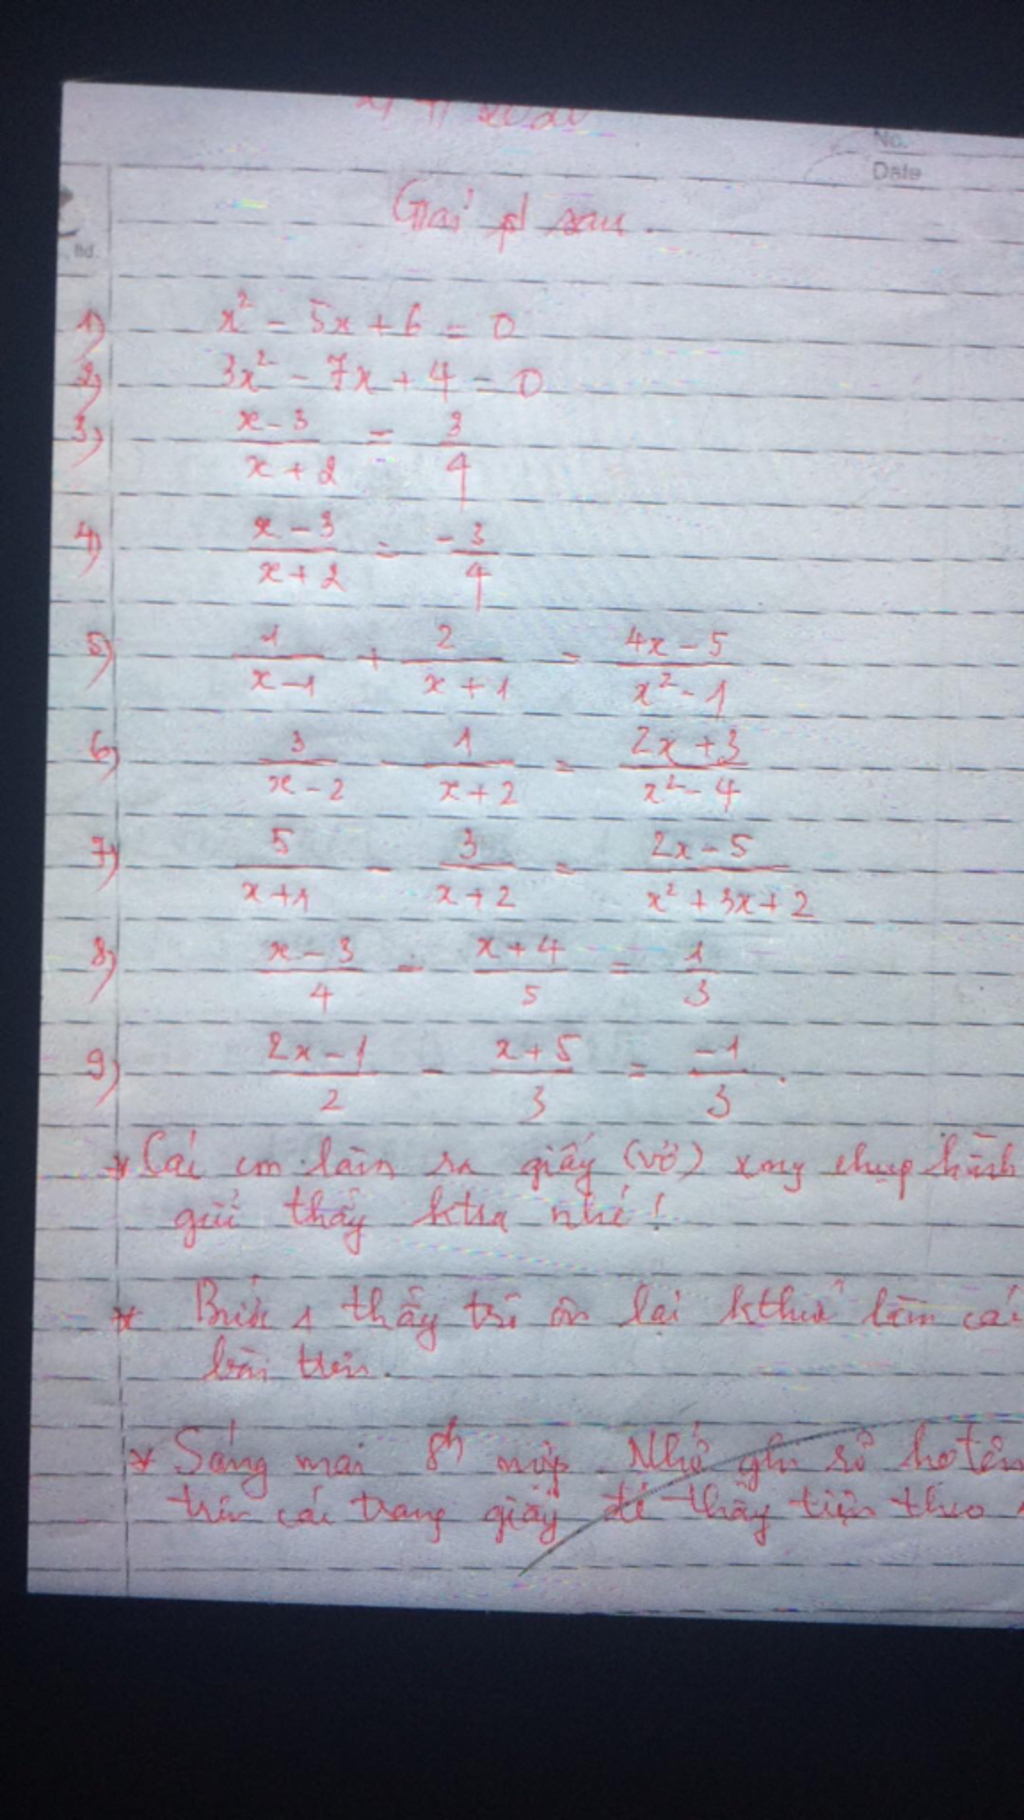 No.
Date
Giải pt sau.
1) x² - 5x + 6 = 0
2) 3x² - 7x + 4 = 0
3) (x-3)/(x+2) = 3/4
4) (x-3)/(x+2) = -3/4
5) 1/(x-1) + 2/(x+1) = (4x-5)/(x²-1)
6) 3/(x-2) - 1/(x+2) = (2x+3)/(x²-4)
7) 5/(x+1) - 3/(x+2) = (2x-5)/(x²+3x+2)
8) (x-3)/4 - (x+4)/5 = 1/3
9) (2x-1)/2 - (x+5)/3 = -1/3.
* Các em làm ra giấy (vở) xong chụp hình
gửi thầy ktra nhé!
* Bước 1 thầy trò ôn lại kthức làm các
bài trên.
* Sáng mai 8h nộp. Nhớ ghi rõ họ tên
trên các trang giấy để thầy tiện theo